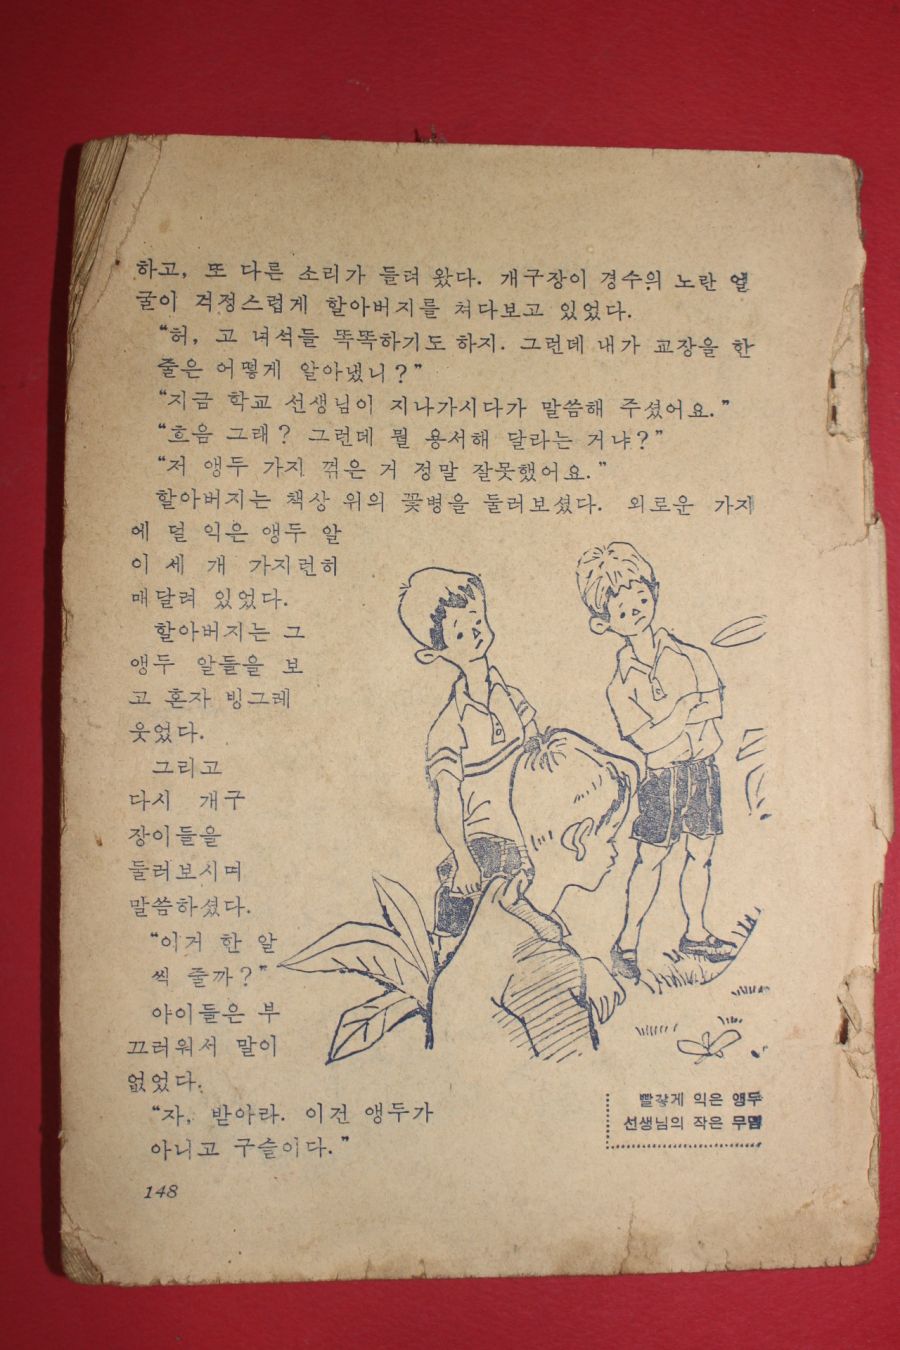 하고, 또 다른 소리가 들려 왔다. 개구장이 경수의 노란 얼
굴이 걱정스럽게 할아버지를 쳐다보고 있었다.
“허, 고 녀석들 똑똑하기도 하지. 그런데 내가 교장을 한
줄은 어떻게 알아냈니?”
“지금 학교 선생님이 지나가시다가 말씀해 주셨어요.”
“흐음 그래? 그런데 뭘 용서해 달라는 거냐?”
“저 앵두 가지 꺾은 거 정말 잘못했어요.”
할아버지는 책상 위의 꽃병을 둘러보셨다. 외로운 가지
에 덜 익은 앵두 알
이 세 개 가지런히
매달려 있었다.
할아버지는 그
앵두 알들을 보
고 혼자 빙그레
웃었다.
그리고
다시 개구
장이들을
둘러보시며
말씀하셨다.
“이거 한 알
씩 줄까?”
아이들은 부
끄러워서 말이
없었다.
“자, 받아라. 이건 앵두가
아니고 구슬이다.”
빨갛게 익은 앵두
선생님의 작은 무덤
148